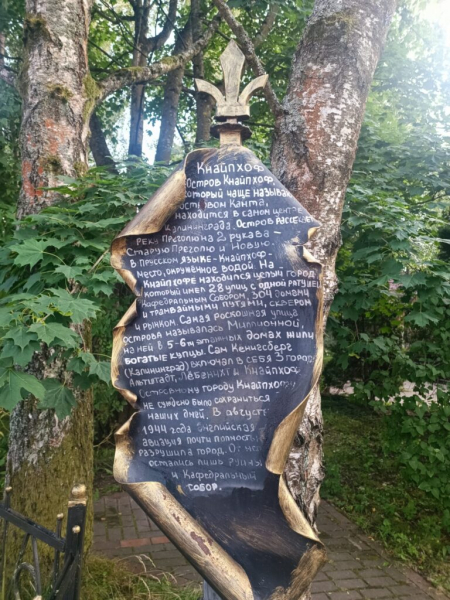 Кнайпхоф
Остров Кнайпхоф,
который чаще называют
островом Канта,
находится в самом центре
Калининграда. Остров рассекает
река Преголю на 2 рукава –
Старую Преголю и Новую.
В прусском языке - Кнайпхоф -
место, окружённое водой. На
Кнайпхофе находился целый город
который имел 28 улиц с одной ратушей
Кафедральным Собором, 304 домами
и трамвайными путями, сквером
и рынком. Самая роскошная улица
острова называлась Миллионной,
на ней в 5-6и этажных домах жили
богатые купцы. Сам Кенигсберг
(Калининград) включал в себя 3 города
Альтштадт, Лёбенихт и Кнайпхоф
Островному городу Кнайпхофу
не суждено было сохраниться
наших дней. В августе
1944 года английская
авиация почти полностью
разрушила город. От него
остались лишь руины
и Кафедральный
собор.